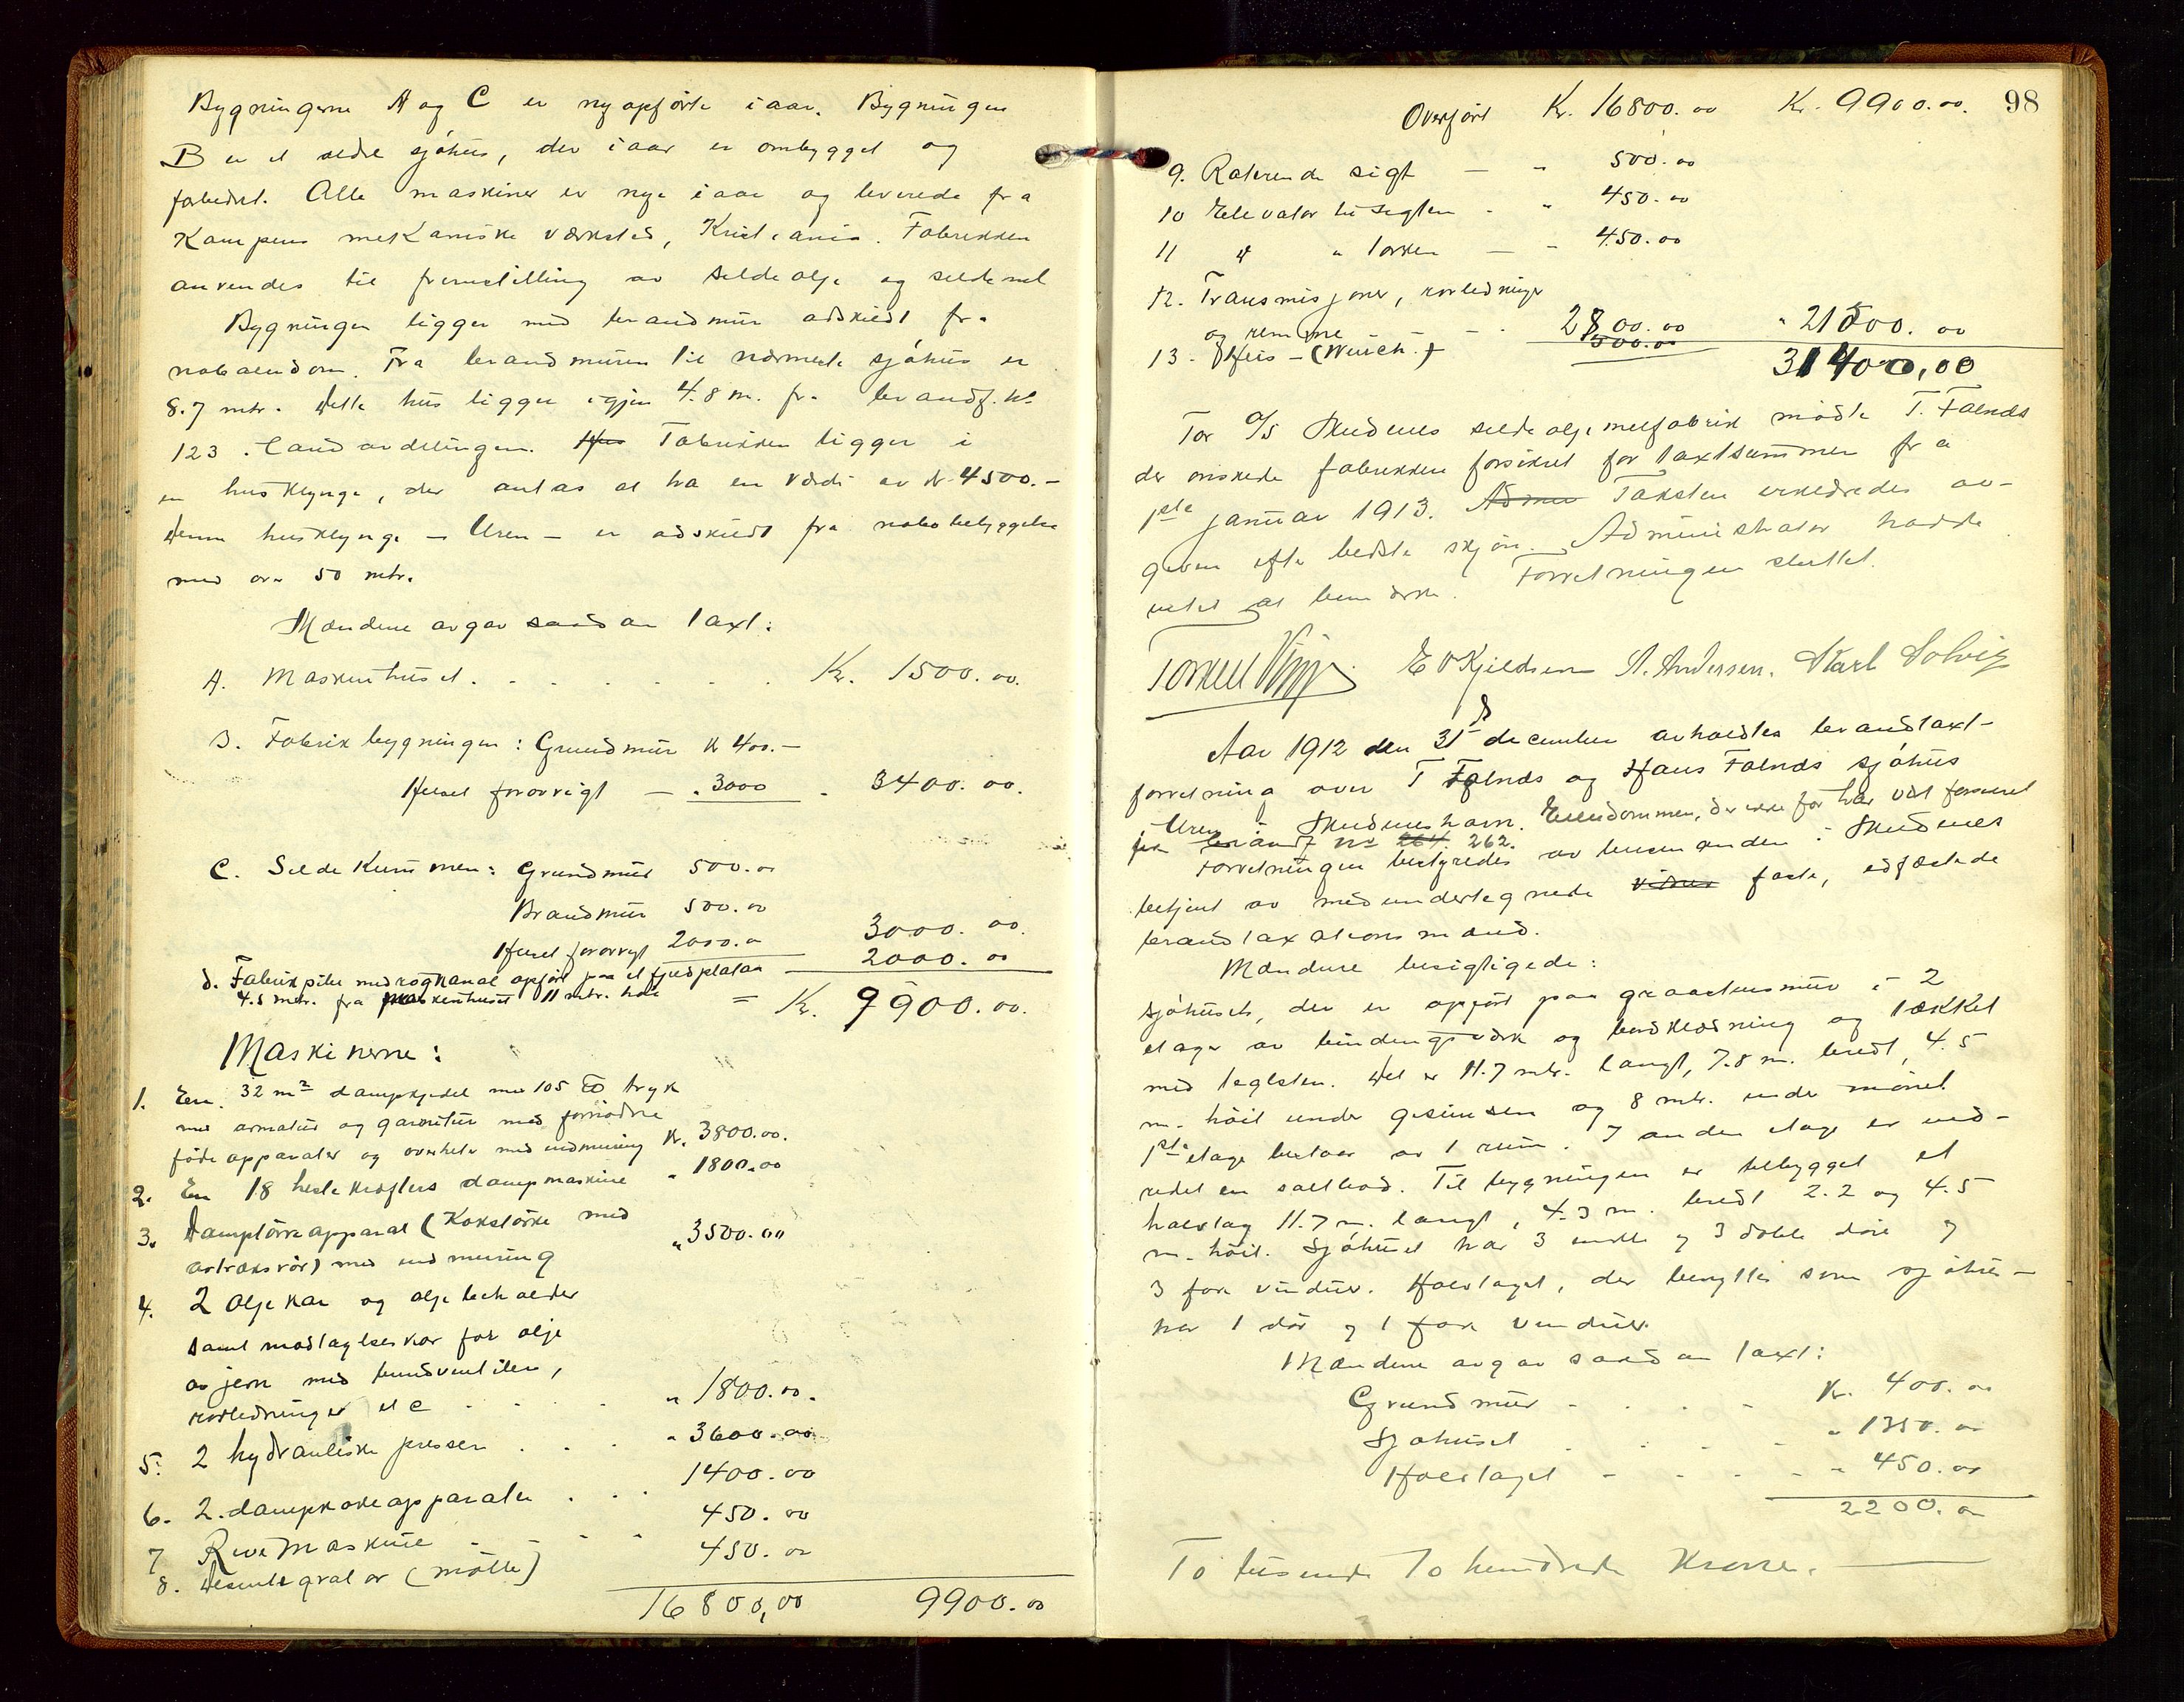 Bygningerne A og C er nyopførte iaar. Bygningen
B er et ældre sjøhus, der iaar er ombygget og
forbedret. Alle maskiner er nye iaar og leverede fra
Kampens mekaniske værksted, Kristiania. Fabrikken
anvendes til fremstilling av sildeolje og sildemel
Bygningen ligger med brandmur adskildt fra
naboeiendom. Fra brandmuren til nærmeste sjøhus er
8.7 mtr. Dette hus ligger igjen 4.8 m. fra brandf. No
123 Landavdelingen. Hus Fabrikken ligger i
en husklynge, der antas at ha en værdi av kr 4500.-
Denne husklynge - Uren - er adskildt fra nabobebyggelse
med over 50 mtr.
Mændene avgav saadan taxt:
A. Maskinhuset . . . . . . . Kr. 1500.00.
B. Fabrikbygningen: Grundmur kr 400.-
Huset forøvrigt — " 3000 " 3400.00.
C. Silde Kummen: Grundmur 500.00
Brandmur 500.00
Huset forøvrigt 2000.00 3000.00.
d. Fabrikpibe med røgkanal opført paa et fjeldplataa 2000.00
4.5 mtr. fra maskinhuset 11 mtr. høi = Kr. 9900.00.
Maskinerne:
1. En 32 m2 dampkjedel med 105 tryk
med armatur og garnitur med fornødne
fødeapparater og overheter med indmuring Kr. 3800.00.
2. En 18 hestekræfters dampmaskine " 1800.00
3. Damptørreapparat (Kokstørke med
avtræksrør) med indmuring " 3500.00
4. 2 oljekar og oljebeholder
samt modtagelseskar for olje
av jern med bundventiler,
rørledninger etc . . . " 1800.00.
5. 2 hydrauliske presser . . . " 3600.00
6. 2 dampkokeapparater . . . 1400.00
7 Rivemaskine - - - 450.00
8. Desintegrator (mølle) 450.00
16800,00 9900.00
98
Overført Kr. 16800.00 Kr. 9900.00.
9. Roterende sigt — " 500.00
10 Elevator til sigten - " 450.00
11 " " tørken — - 450.00
12. Transmisjoner, rørledninger
og remme - - - 2800.00 " 21500.00
13. Heis - (Winch.) 500.00
31400,00
For A/S Skudenes sildeoljemelfabrik mødte T. Falnes
der ønskede fabrikken forsikret for taxtsummen fra
1ste januar 1913. Admin Taksten erklæredes av-
given efter bedste skjøn. Administrator hadde
intet at bemærke. Forretningen sluttet.
E O Kjeldsen A. Andersen. Karl Solvig
Aar 1912 den 31 december avholdtes brandtaxt-
forretning over T Falnes og Hans Falnes sjøhus
i Uren i Skudeneshavn. Eiendommen, der ikke før har vært forsikret
før brandf No 264. 262.
Forretningen bestyredes av lensmanden i Skudenes
betjent av medundertegnede vidner faste, edfæstede
brandtaxationsmænd.
Mændene besigtigede:
Sjøhuset, der er opført paa graastensmur i 2
etager av bindingsværk og bordklædning og tækket
med teglsten. Det er 11.7 mtr. langt, 7.8 m. bredt, 4.5
m. høit under gesimsen og 8 mtr. under mønet.
1ste etage bestaar av 1 rum. I anden etage er ind-
redet en saltbod. Til bygningen er tilbygget et
halvtag 11.7 m. langt, 4.3 m. bredt 2.2 og 4.5
m. høit. Sjøhuset har 3 enkle og 3 doble døre og
3 fag vinduer. Halvtaget, der benyttes som sjøhus -
har 1 dør og 1 fag vinduer.
Mændene avgav saadan taxt:
Grundmur - . . - Kr. 400.00
Sjøhuset . . . - " 1350.00
Halvtaget - - - - " 450.00
2200.00
To tusinde to hundrede Kroner.